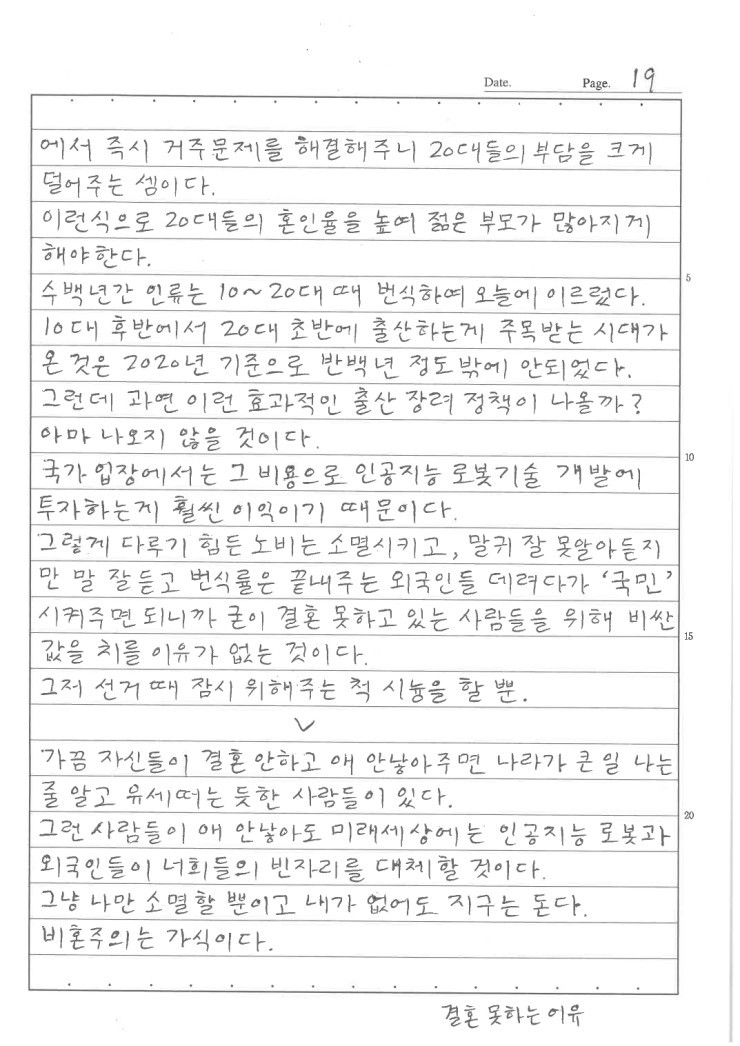 Date. Page. 19
에서 즉시 거주문제를 해결해주니 20대들의 부담을 크게
덜어주는 셈이다.
이런식으로 20대들의 혼인율을 높여 젊은 부모가 많아지게
해야한다.
5
수백년간 인류는 10~20대 때 번식하여 오늘에 이르렀다.
10대 후반에서 20대 초반에 출산하는게 주목받는 시대가
온 것은 2020년 기준으로 반백년 정도밖에 안되었다.
그런데 과연 이런 효과적인 출산 장려 정책이 나올까?
아마 나오지 않을 것이다.
10
국가 입장에서는 그 비용으로 인공지능 로봇기술 개발에
투자하는게 훨씬 이익이기 때문이다.
그렇게 다루기 힘든 노비는 소멸시키고, 말귀 잘 못알아듣지
만 말 잘듣고 번식률은 끝내주는 외국인들 데려다가 '국민'
시켜주면 되니까 굳이 결혼 못하고 있는 사람들을 위해 비싼
15
값을 치를 이유가 없는 것이다.
그저 선거 때 잠시 위해주는 척 시늉을 할 뿐.
∨
가끔 자신들이 결혼 안하고 애 안낳아주면 나라가 큰 일 나는
줄 알고 유세떠는 듯한 사람들이 있다.
20
그런 사람들이 애 안낳아도 미래세상에는 인공지능 로봇과
외국인들이 너희들의 빈자리를 대체할 것이다.
그냥 나만 소멸할 뿐이고 내가 없어도 지구는 돈다.
비혼주의는 가식이다.
결혼 못하는 이유